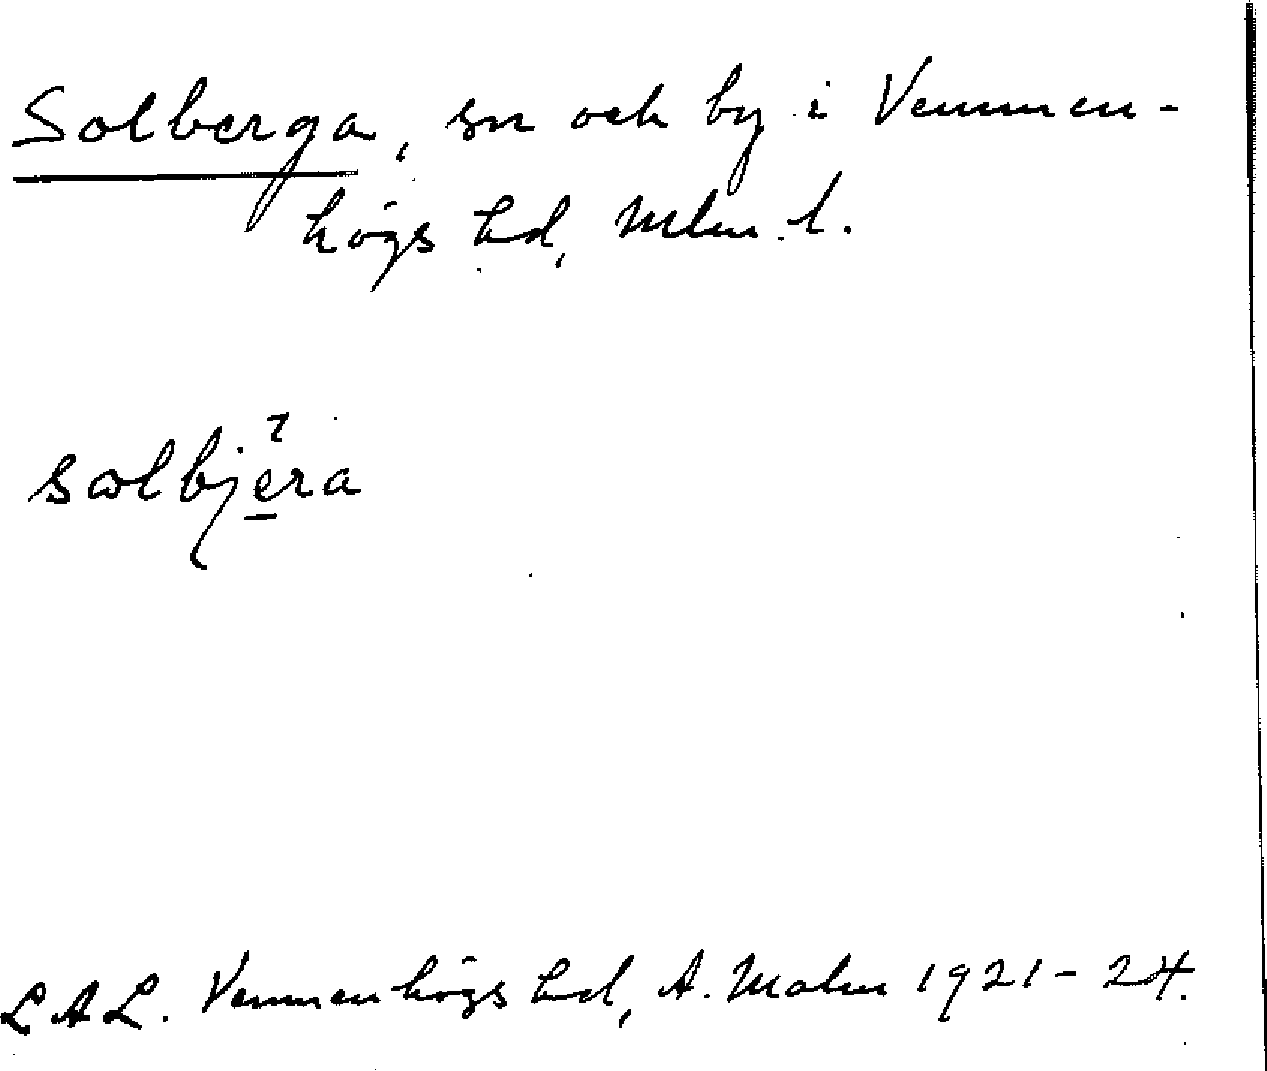 Solberga, sn och by i Vemmen-
högs hd, Mlm. l.
solbjera
L A L. Vemmenhögs hd, A. Malm 1921-24.